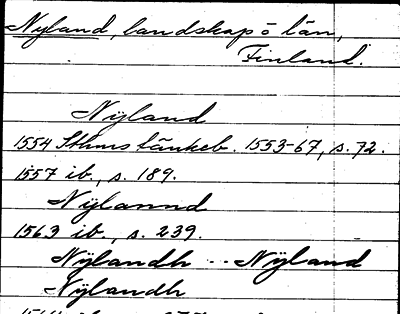 Nyland, landskap o län,
Finland.
Nÿland
1554 Sthms tänkeb. 1553-67, s. 72.
1557 ib., s. 189.
Nÿlannd
1563 ib., s. 239.
Nÿlandh -- Nÿland
Nÿlandh